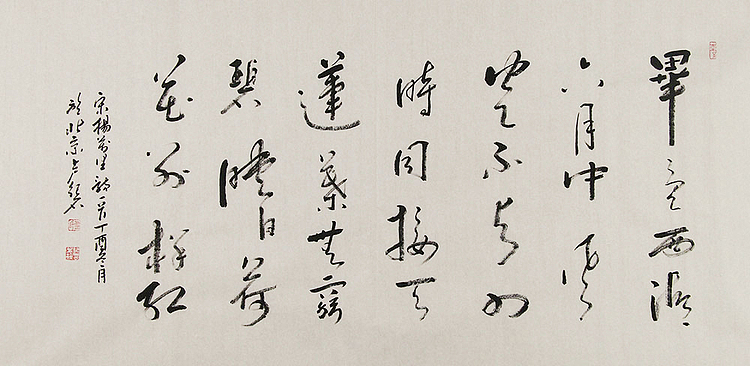 畢竟西湖
六月中風
光不與四
時同接天
蓮葉無窮
碧暎日荷
花别樣紅
宋楊萬里詩一首丁酉冬月
於北京